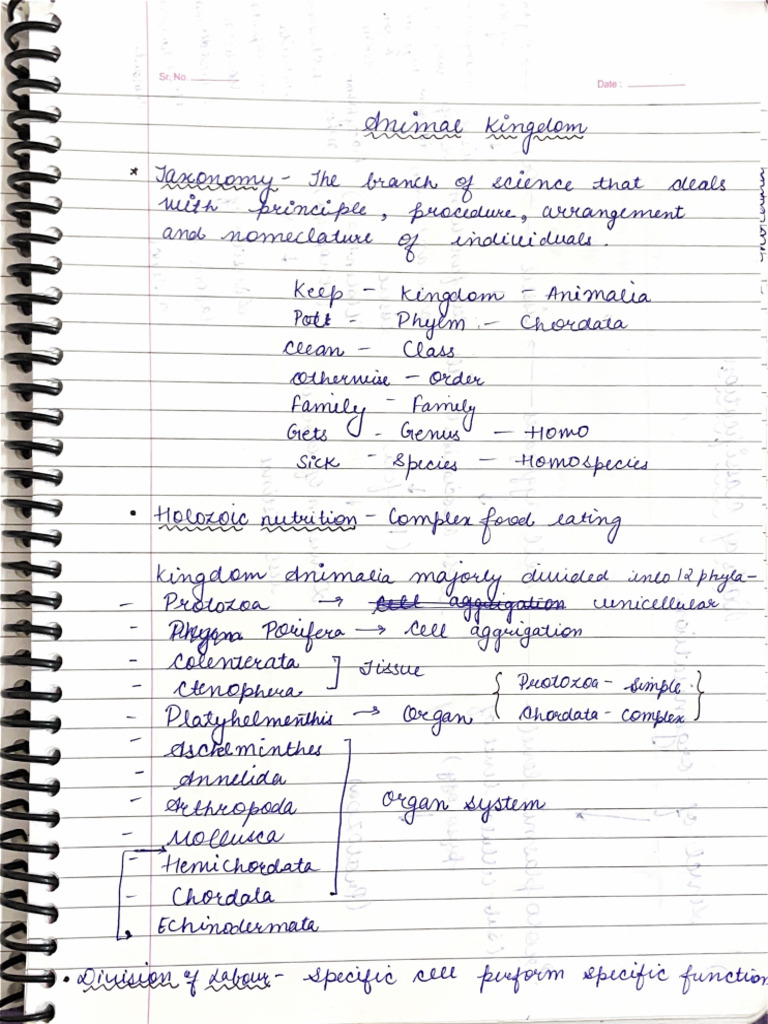 Sr. No.
Date :
Animal Kingdom
* Taxonomy - The branch of science that deals
with principle, procedure, arrangement
and nomeclature of individuals.
Keep - Kingdom - Animalia
Pott - Phylm - Chordata
Clean - Class
Otherwise - Order
Family - Family
Gets - Genus - Homo
Sick - Species - Homospecies
• Holozoic nutrition - Complex food eating
Kingdom Animalia majorly divided into 12 phyla-
- Protozoa → cell aggrigation unicellular
- Porifera → cell aggrigation
- Colenterata
- Ctenophera ] Tissue
- Platyhelmenthis → Organ { Protozoa - simple
Chordata - complex }
- Aschelminthes
- Annelida
- Arthropoda
- Mollusca
- Hemichordata
- Chordata
] Organ system
Echinodermata
• Division of Labour - Specific cell perform specific function